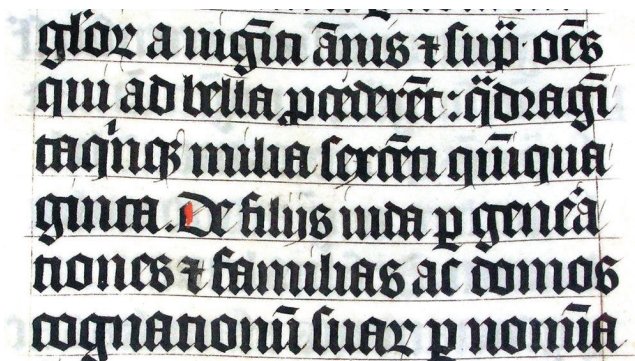 gĺoꝝ a uigīti ānis ⁊ sup̈ · oēs
qui ad bella ꝓcederēt : q̈dragī
taqͥnqꝫ milia sexcēti quīqua
ginta . De filijs iuda ꝑ gene͛a
tiones ⁊ familias ac domos
cognationū suaꝝ ꝑ nomīa